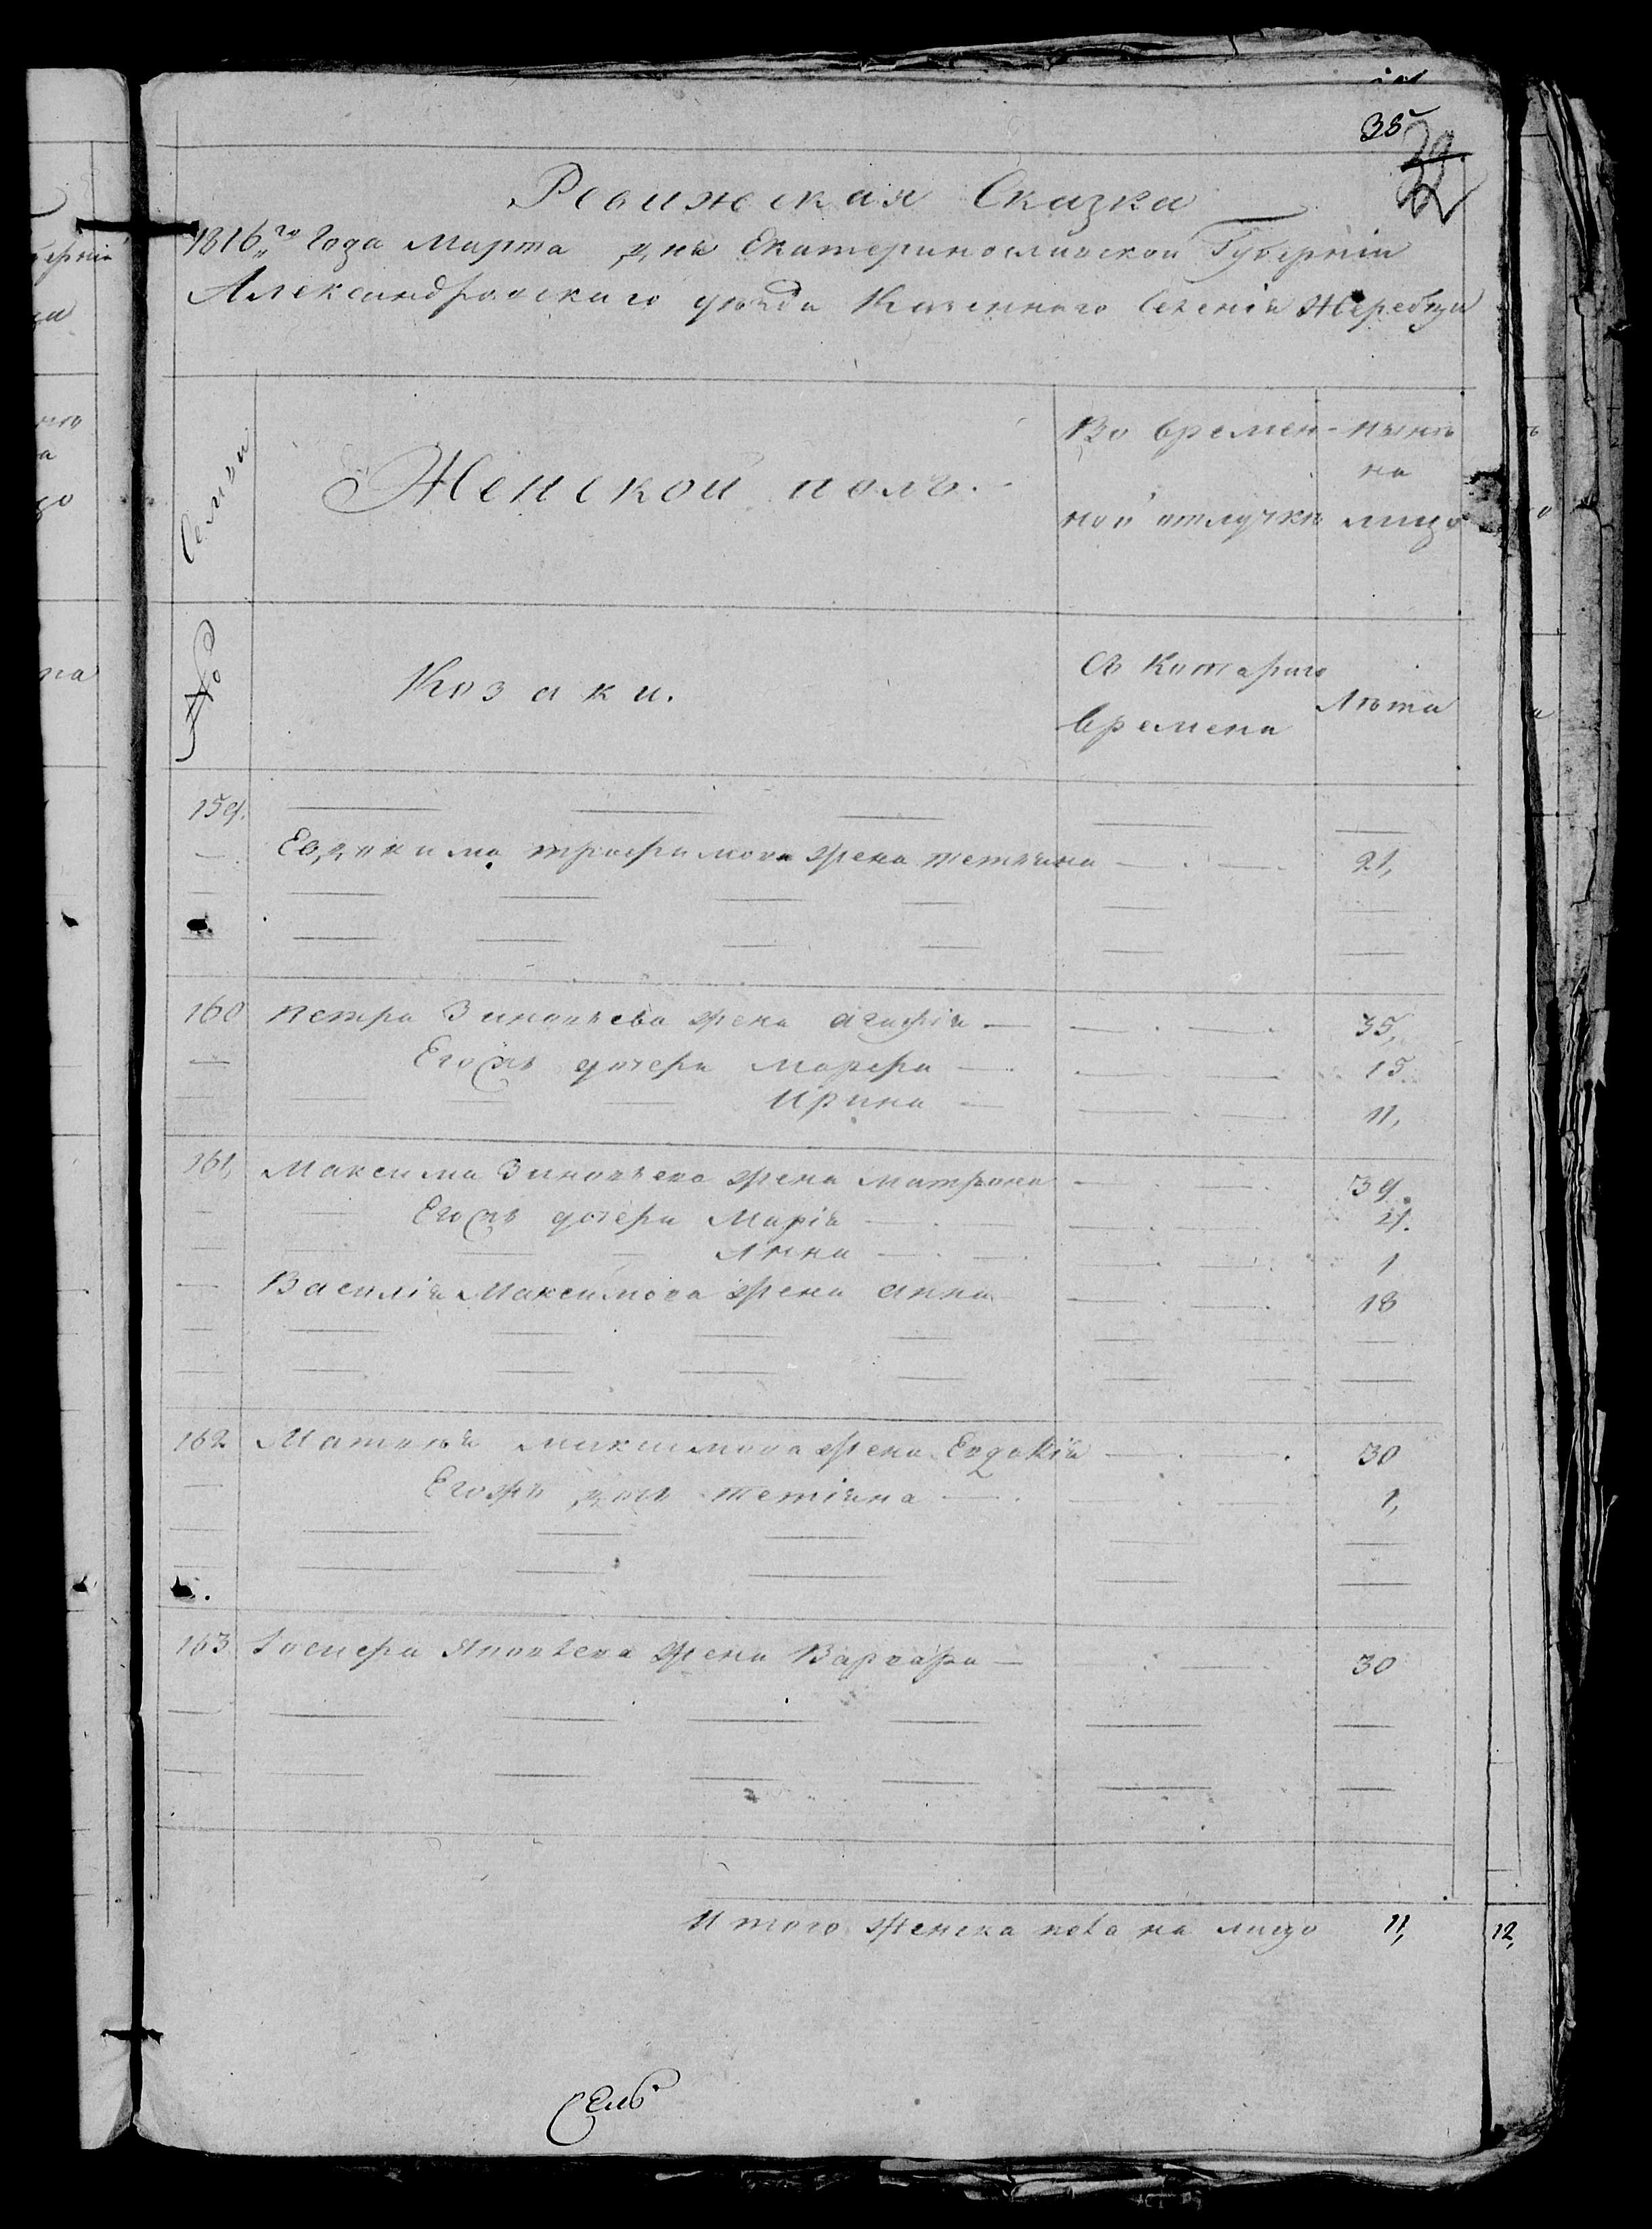 35
32
Ревижская Сказка
1816го Года Марта дня Екатеринославской Губерніи
Александровскаго уезда Казенного Селенія Жеребца
Семьи
Женской полъ.
Во времен-
ной отлучкѣ
нынѣ
на
лицо
№
Козаки.
Съ Котараго
времена
Лѣта
159.
Евдокима трофимова жена тетьяна 21,
160 Петра Зиновьева жена агафія 35,
Егожъ дочери Марфа 15
Ирина 11,
161, Максима Зиновьева жена матрона 39.
Егожъ дочери Марія 4.
Анна 1
Василія Максимова жена анна 18
162 Матвѣя максимова жена Евдокія 30
Егожъ дочь тетіяна 1,
163 Яковлева жена Варвара 30
Итого женска пола на лицо 11,
12,
Сель